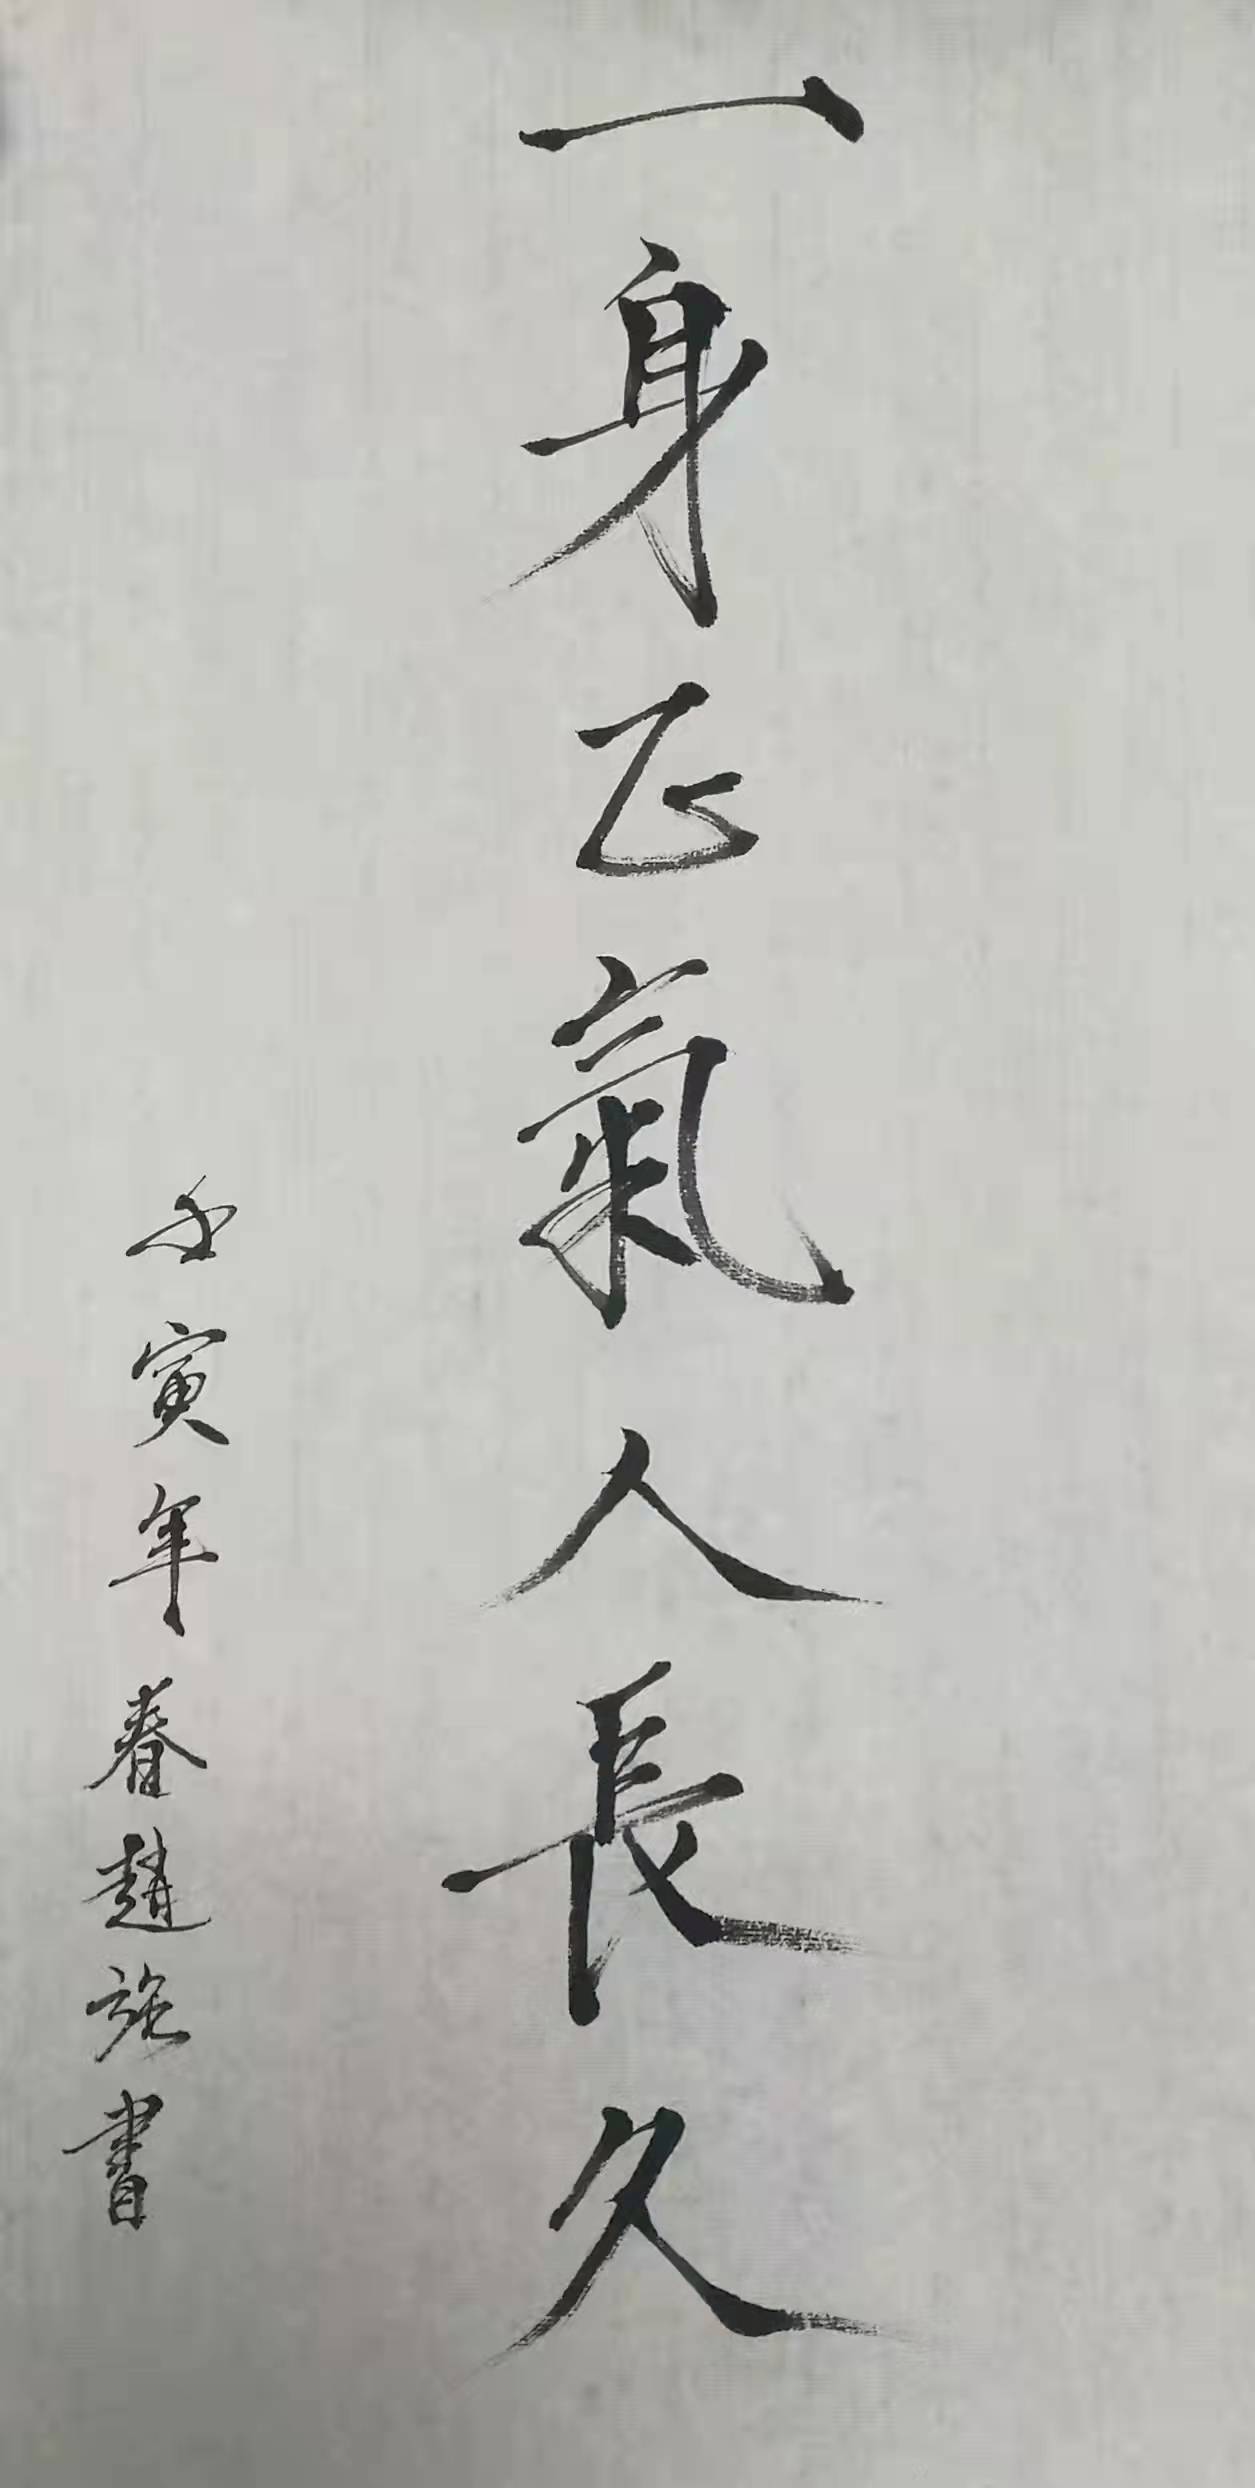 一身正氣人長久
壬寅年春趙施書